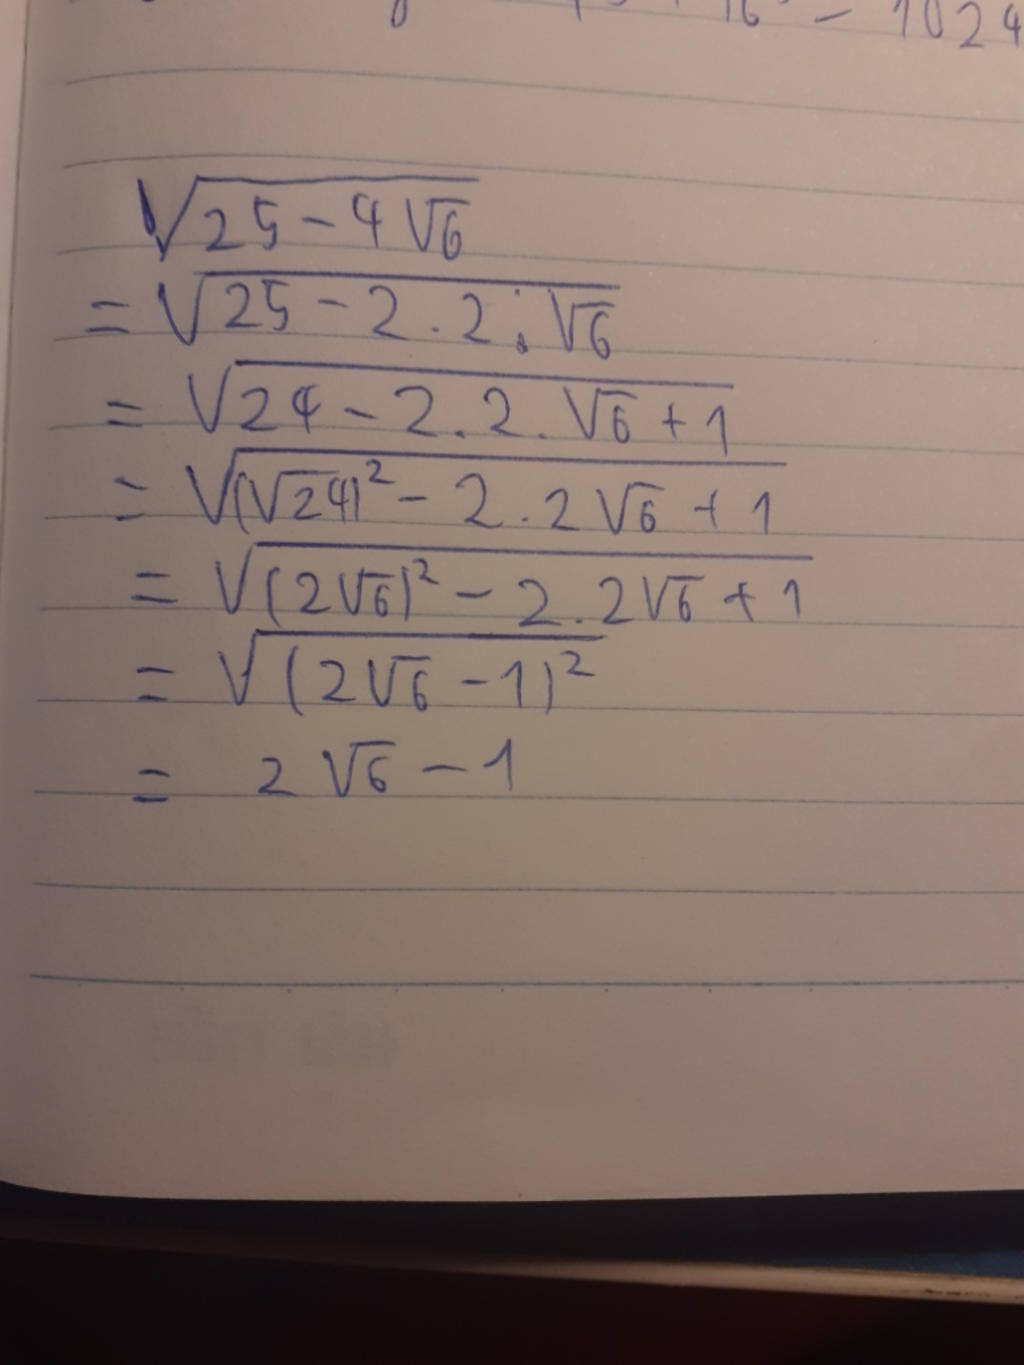 - 1024
√(25 - 4√6)
= √(25 - 2.2.√6)
= √(24 - 2.2.√6 + 1)
= √((√24)² - 2.2√6 + 1)
= √((2√6)² - 2.2√6 + 1)
= √((2√6 - 1)²)
= 2√6 - 1